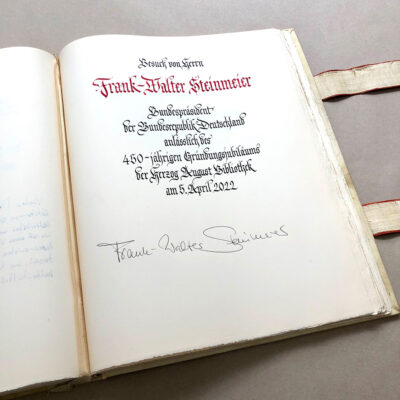 Besuch von Herrn
Frank-Walter Steinmeier
Bundespräsident
der Bundesrepublik Deutschland
anlässlich des
450-jährigen Gründungsjubiläums
der Herzog August Bibliothek
am 5. April 2022
Frank-Walter Steinmeier